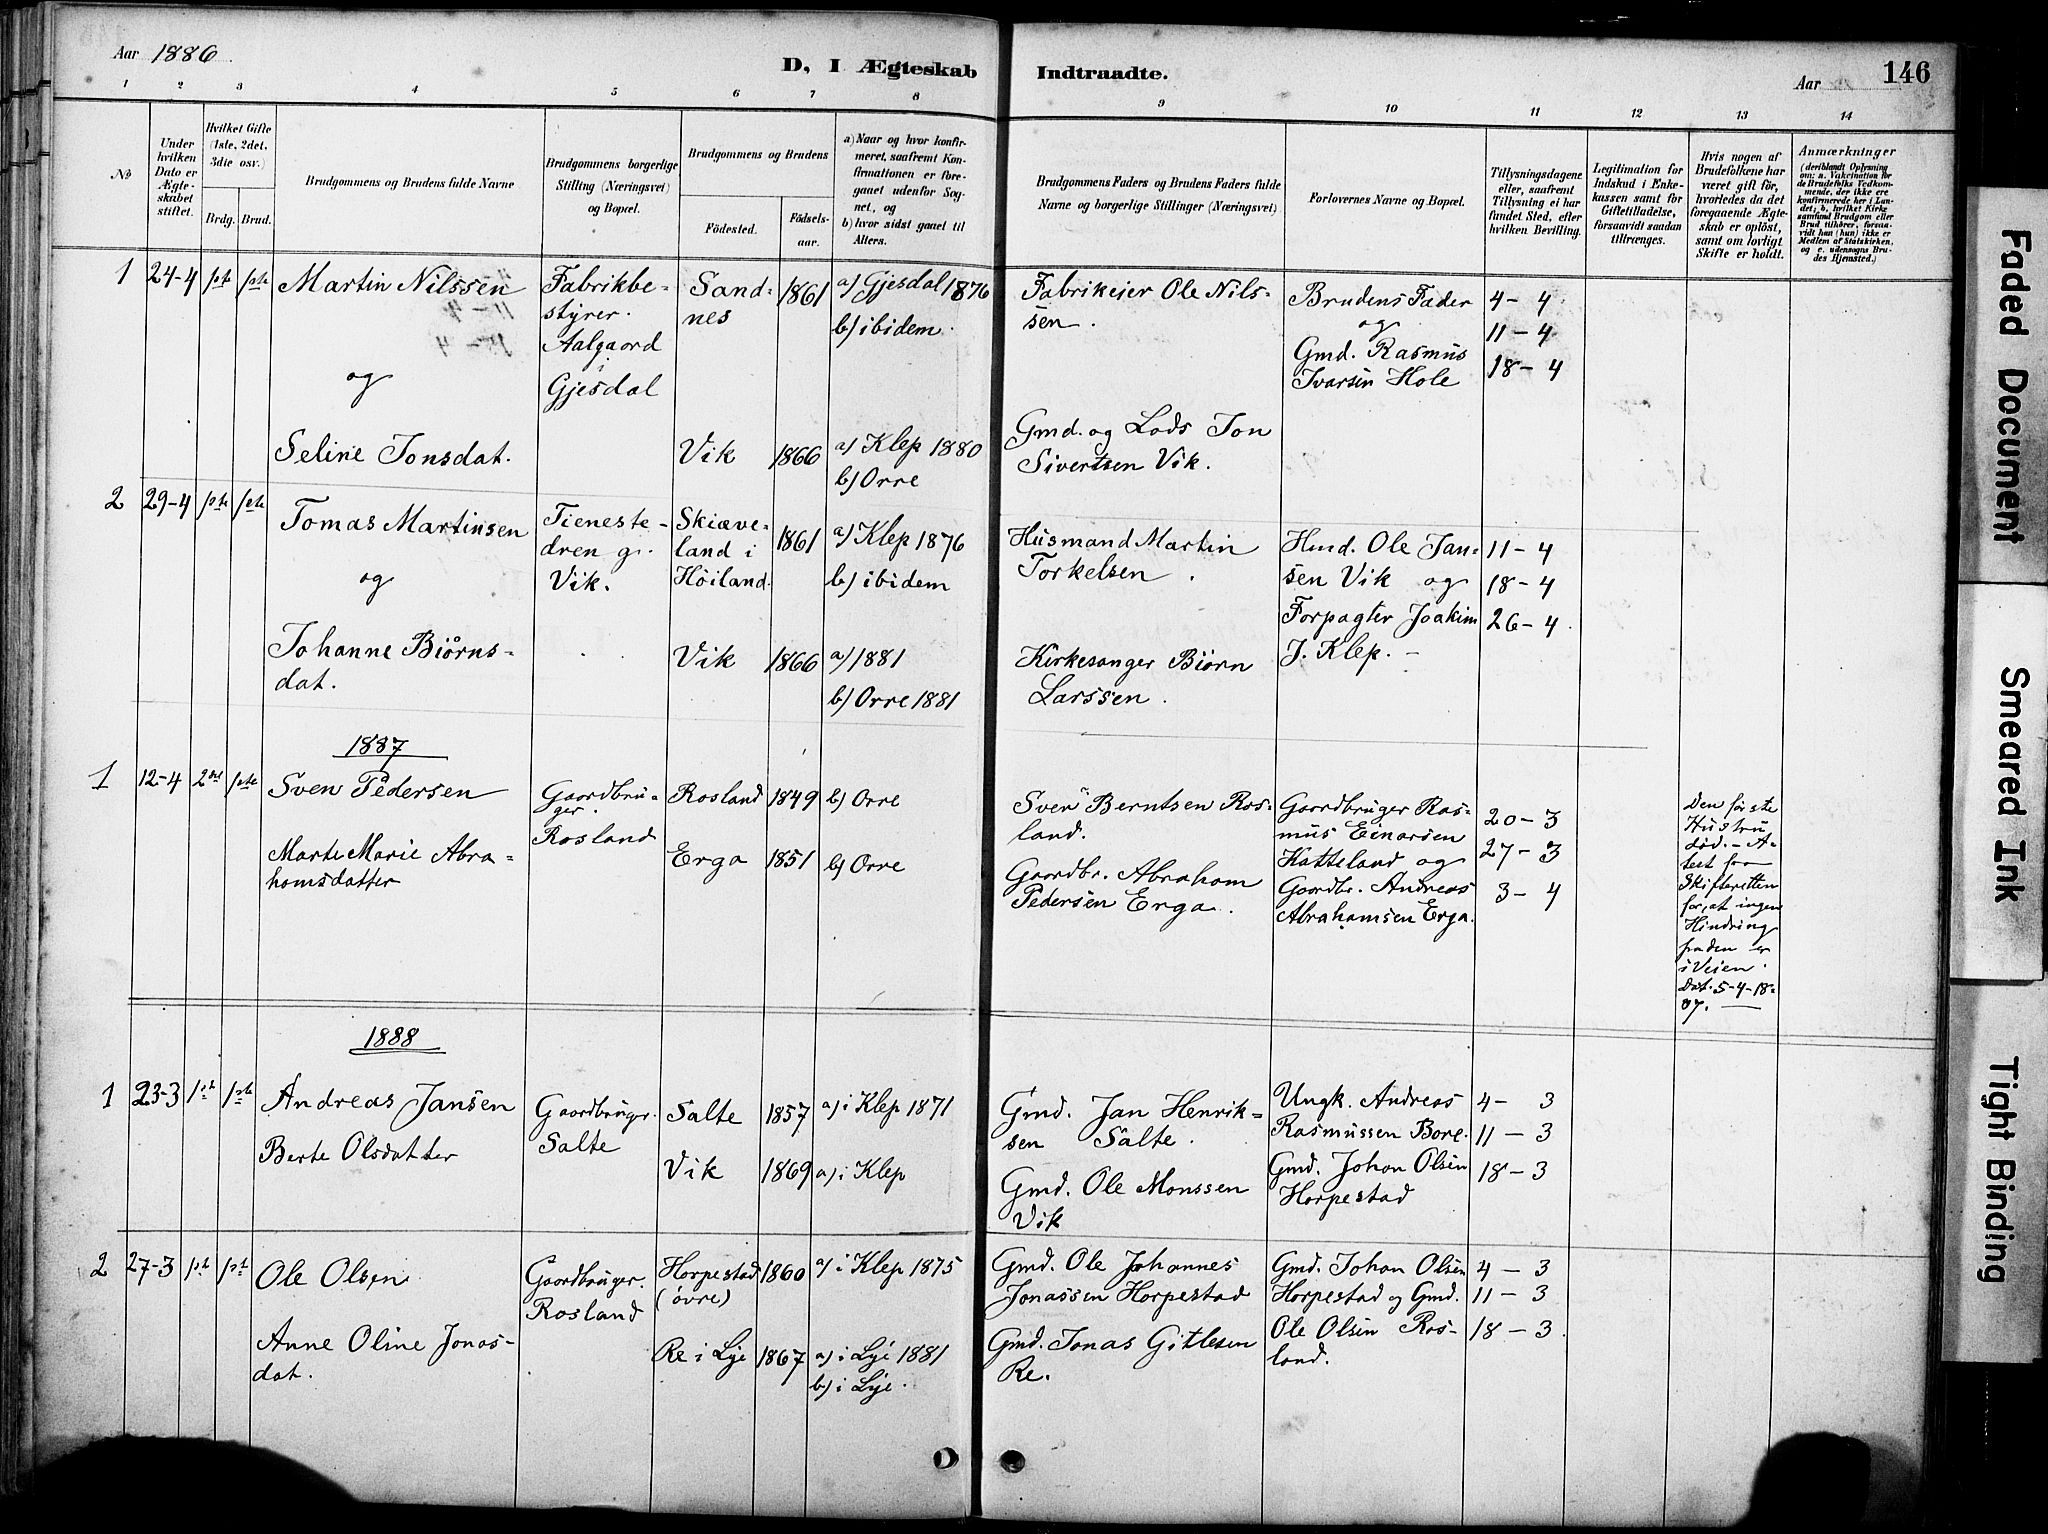 Aar 1886
D, I Ægteskab Indtraadte.
Aar 146
1 2 3 4 5 6 7 8 9 10 11 12 13 14
№
Under hvilken Dato er Ægteskabet stiftet.
Hvilket Gifte (1ste, 2det, 3die osv.)
Brdg. Brud.
Brudgommens og Brudens fulde Navne
Brudgommens borgerlige Stilling (Næringsvei) og Bopæl.
Brudgommens og Brudens
Fødested.
Fødsels-aar.
a) Naar og hvor konfirmeret, saafremt Konfirmationen er foregaaet udenfor Sognet, og
b) hvor sidst gaaet til Alters.
Brudgommens Faders og Brudens Faders fulde Navne og borgerlige Stillinger (Næringsvei)
Forlovernes Navne og Bopæl.
Tillysningsdagene eller, saafremt Tillysning ei har fundet Sted, efter hvilken Bevilling.
Legitimation for Indskud i Enkekassen samt for Giftetilladelse, forsaavidt saadan tiltrænges.
Hvis nogen af Brudefolkene har været gift før, hvorledes da det foregaaende Ægteskab er opløst, samt om lovligt Skifte er holdt.
Anmærkninger
(deriblandt Oplysning om: a. Vakcination for de Brudefolks Vedkommende, der ikke ere konfirmerede her i Landet; b. hvilket Kirkesamfund Brudgom eller Brud tilhører, forsaavidt han (hun) ikke er Medlem af Statskirken, og c. udensogns Brudes Hjemsted.)
1 24-4 1ste 1ste Martin Nilssen
og
Seline Jonsdat.
Fabrikbe-
styrer.
Aalgaard
i
Gjesdal
Sand-
nes
1861
a) Gjesdal 1876
b) ibidem.
Vik 1866
a) Klep 1880
b) Orre
Fabrikeier Ole Nils-
sen.
Gmd. og Lods Jon
Sivertsen Vik.
Brudens Fader
og
Gmd. Rasmus
Ivarsen Hole
4- 4
11-4
18-4
2 29-4 1ste 1ste Tomas Martinsen
og
Johanne Biørns-
dat.
Tieneste-
dreng.
Vik.
Skiæve-
land i
Høiland.
1861
a) Klep 1876
b) ibidem
Vik 1866
a) 1881
b) Orre 1881
Husmand Martin
Torkelsen.
Kirkesanger Biørn
Larssen.
Hmd. Ole Jan-
sen Vik og
Forpagter Joakim
J. Klep. -
11-4
18-4
26-4.
1887
1 12-4 2det 1ste Sven Pedersen
Marte Marie Abra-
hamsdatter
Gaardbru-
ger.
Rosland
Rosland 1849 b) Orre
Erga 1851 b) Orre
Sven Berntsen Ros-
land.
Gaardbr. Abraham
Pedersen Erga.
Gaardbruger Ras-
mus Einarsen
Hatteland og
Gaardbr. Andreas
Abrahamsen Erga.
20-3
27-3
3-4
Den første
Hustru
død. - A-
test fra
Skifteretten
for, at ingen
Hindring
paaden er
i Veien.
Dat. 5-4-18-
87.
1888
1 23-3 1ste 1ste Andreas Jansen
Berte Olsdatter
Gaardbruger.
Salte
Salte 1857 a) i Klep 1871
Vik 1869 a) i Klep
Gmd. Jan Henrik-
sen Salte.
Gmd. Ole Monssen
Vik
Ungk. Andreas
Rasmussen Bore.
Gmd. Johan Olsen
Horpestad
4- 3
11-3
18-3
2 27-3 1ste 1ste Ole Olsen
Anne Oline Jonas-
dat.
Gaardbruger.
Rosland
Horpestad
(øvre)
1860 a) i Klep 1875
Re i Lye 1867 a) i Lye 1881
b) i Lye.
Gmd. Ole Johannes
Jonassen Horpestad
Gmd. Jonas Gitlesen
Re.
Gmd. Johan Olsen
Horpestad og Gmd.
Ole Olsen Ros-
land.
4-3
11-3
18-3.
Faded Document
Smeared Ink
Tight Binding